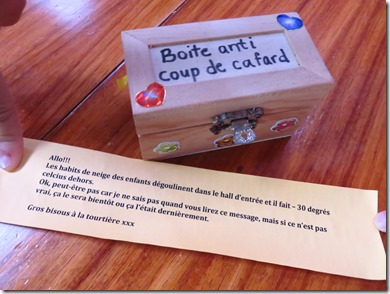 Boite anti
coup de cafard
Allo!!!
Les habits de neige des enfants dégoulinent dans le hall d'entrée et il fait – 30 degrés
celcius dehors.
Ok, peut-être pas car je ne sais pas quand vous lirez ce message, mais si ce n'est pas
vrai, ça le sera bientôt ou ça l'était dernièrement.
Gros bisous à la tourtière xxx